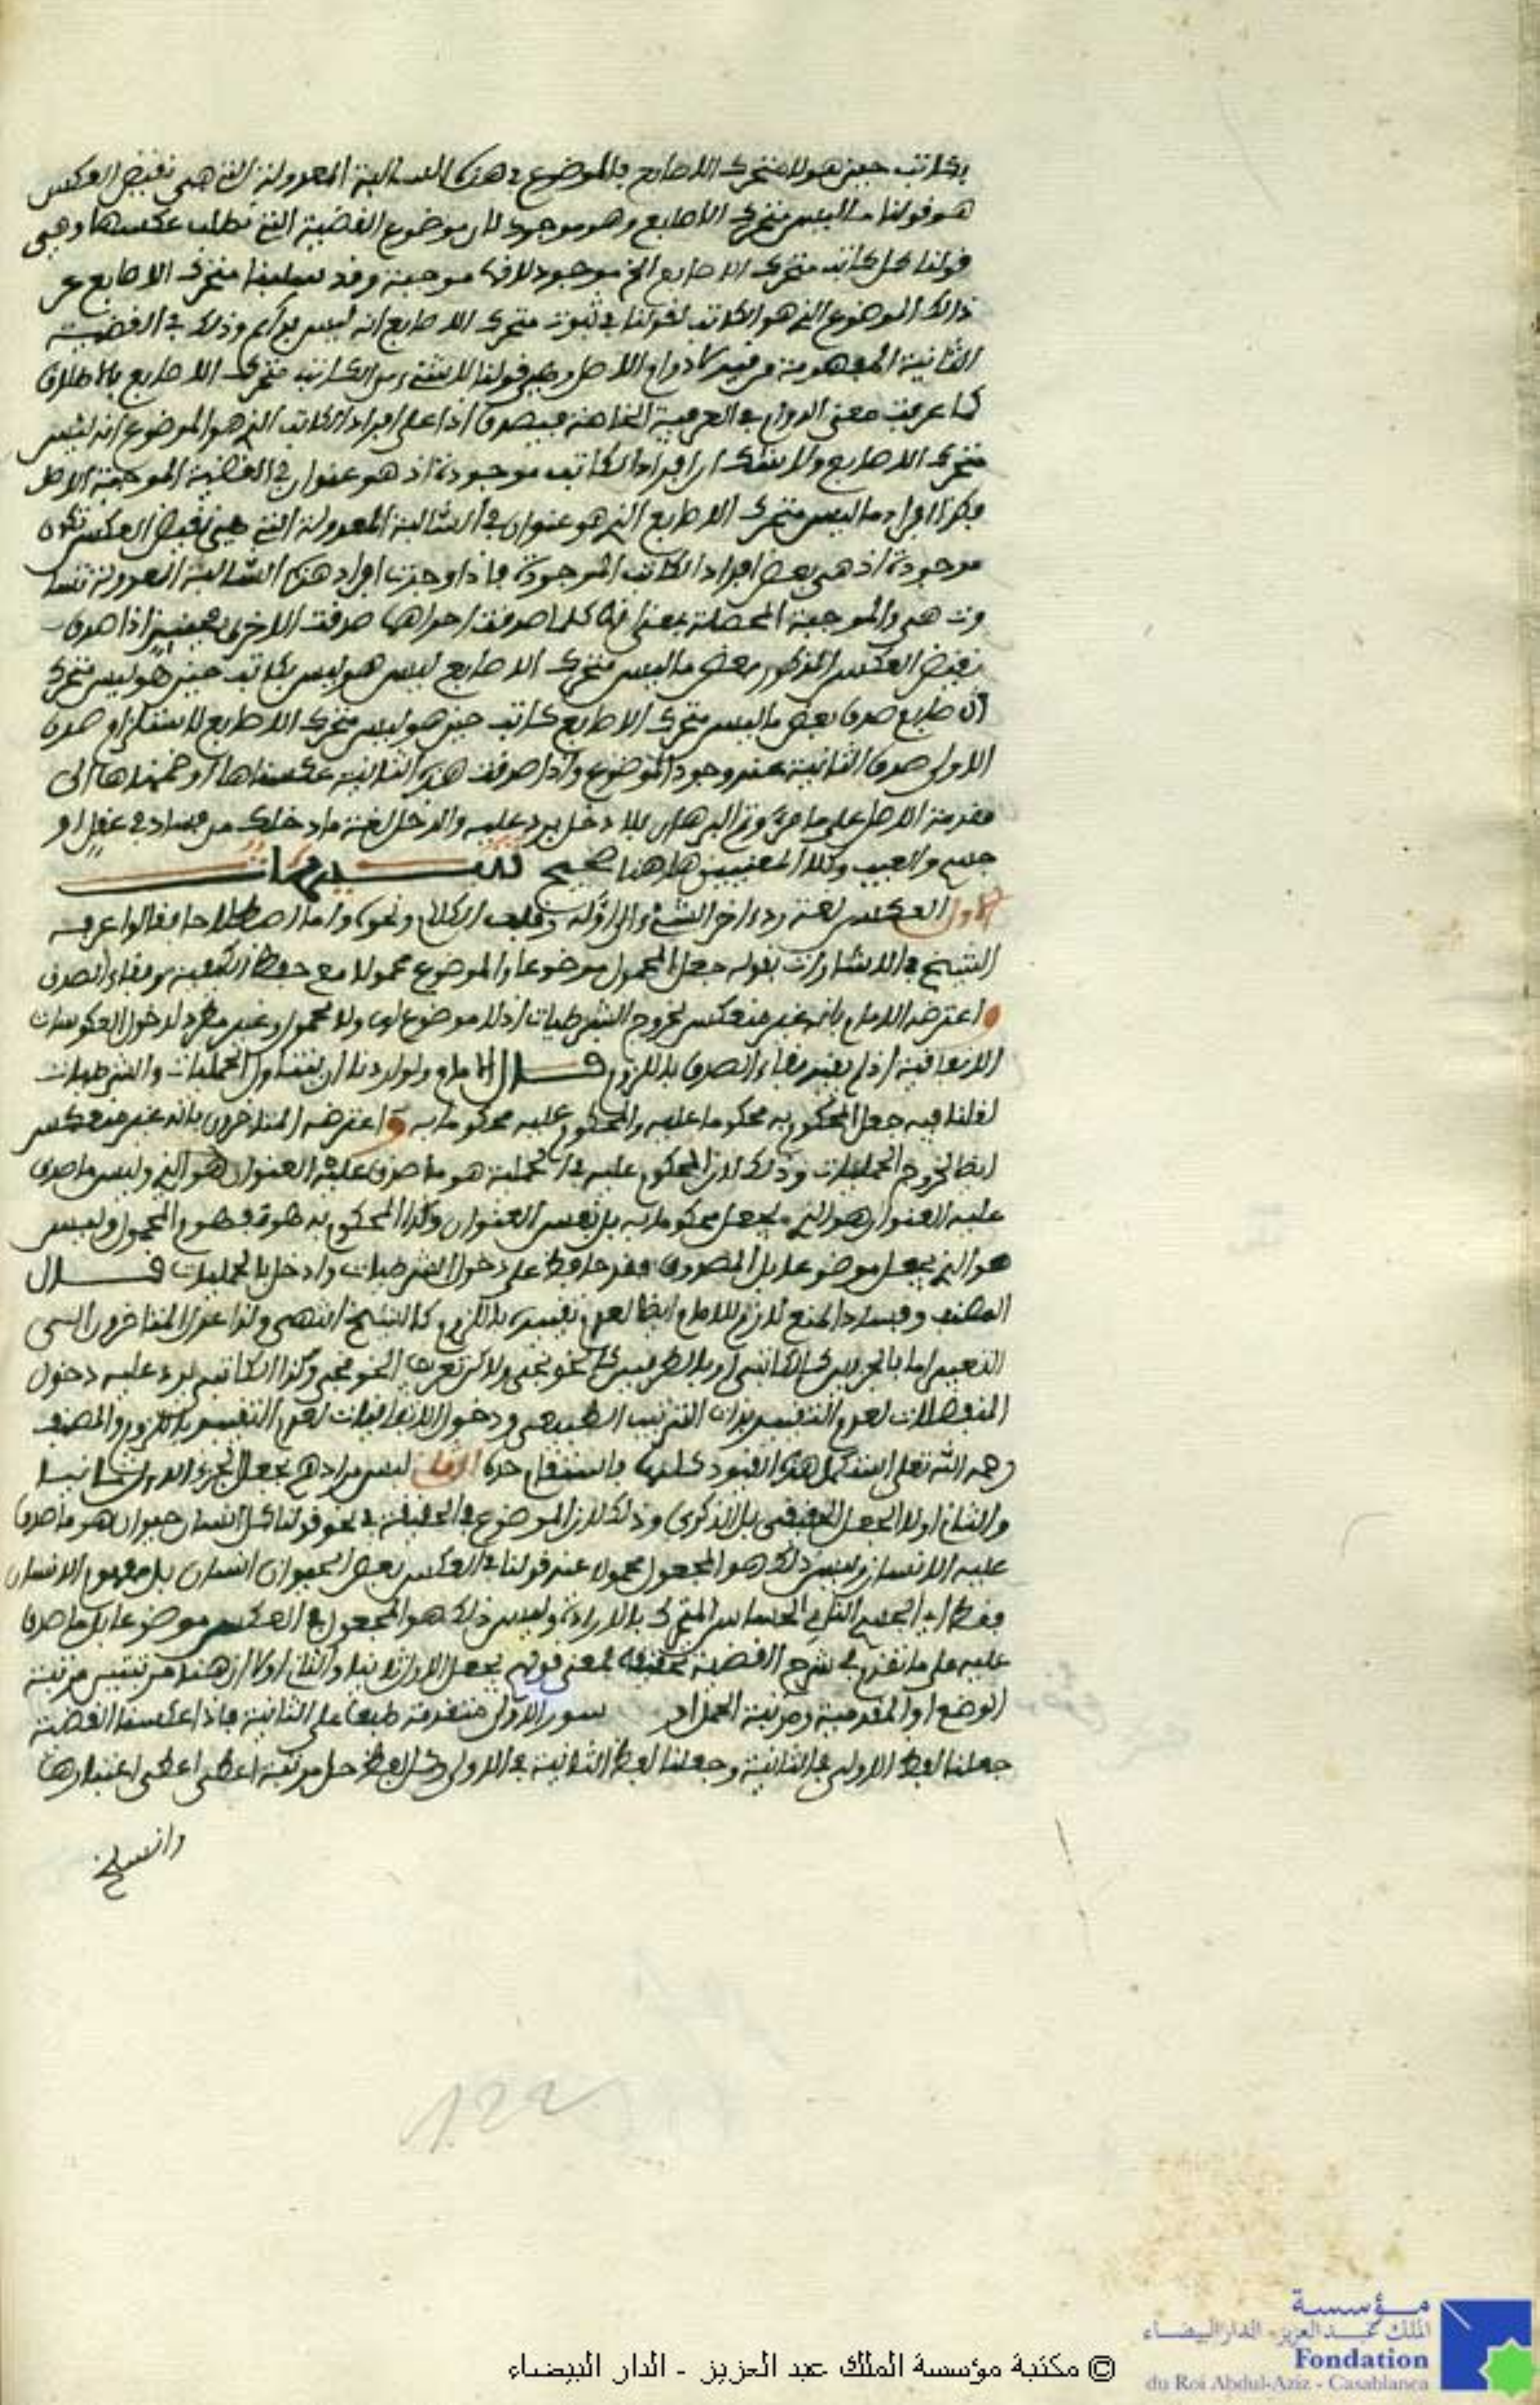 بكاتب حين هو لا متحرك الاصابع فالموضوع في هذه السالبة المعدولة التي هي نقيض العكس
هو قولنا ما ليس متحرك الاصابع وهو موجود لان موضوع القضية التي نطلب عكسها وهي
قولنا كل كاتب متحرك الاصابع الخ موجود لانها موجبة وقد سلبنا متحرك الاصابع عن
ذالك الموضوع الذي هو الكاتب لقولنا في ثبوت متحرك الاصابع انه ليس بدائم وذلك في القضية
الثانية المفهومة من قيد لا دوام الاصل وهي قولنا لا شيء من الكاتب متحرك الاصابع بالاطلاق
كما عرفت معنى الدوام في العرفية الخاصة فيصدق اذا على افراد الكاتب الذي هو الموضوع انه ليس
متحرك الاصابع ولا شك ان افراد الكاتب موجودة اذ هو عنوان في القضية الموجبة الاصل
فكذا افراد ما ليس متحرك الاصابع الذي هو عنوان في السالبة المعدولة التي هي نقيض العكس تكون
موجودة اذ هي بعض افراد الكاتب الموجودة فاذا وجدت افراد هذه السالبة المعدولة تسا
وت هي والموجبة المحصلة بمعنى انه كلما صدقت احداهما صدقت الاخرى فحينئذ اذا صدق
نقيض العكس المذكور بعض ما ليس متحرك الاصابع ليس هو ليس بكاتب حين هو ليس متحرك
الاصابع صدق بعض ما ليس متحرك الاصابع كاتب حين هو ليس متحرك الاصابع لاستلزام صدق
الاولى صدق الثانية عند وجود الموضوع واذا صدقت هذه الثانية عكسناها او ضممناها الى
مقدمة الاصل على ما مر وتم البرهان بلا دخل يرد عليه والدخل لغة ما دخلك من فساد في عقل او
جسم والعيب وكلا المعنيين هاهنا صحيح تنبيهات
الاول العكس لغة رد اخر الشيء الى اوله وقلب الكلام ونحوه واما اصطلاحا فقالوا عرفه
الشيخ في الاشارات بقوله جعل المحمول موضوعا والموضوع محمولا مع حفظ الكيفية وبقاء الصدق
واعترضه الامام بانه غير منعكس لخروج الشرطيات اذ لا موضوع لها ولا محمول وغير مطرد لدخول العكوسات
الاتفاقية اذ لم يقيد بقاء الصدق باللزوم قال الامام ولو اردنا ان يتناول الحمليات والشرطيات
لقلنا فيه جعل المحكوم به محكوما عليه والمحكوم عليه محكوما به واعترضه المتاخرون بانه غير منعكس
ايضا لخروج الحمليات وذلك لان المحكوم عليه في الحملية هو ما صدق عليه العنوان وليس ما صدق
عليه العنوان هو الذي يجعل محكوما به بل نفس العنوان وكذا المحكوم به فهو المحمول وليس
هو الذي يجعل موضوعا بل المصدوق فقد حافظ على دخول الشرطيات وادخل بالحمليات قال
المصنف وفساد المنع لازم للامام ايضا لعدم تقييده باللزوم كالشيخ انتهى ولذا عدل المتاخرون الى
التعبير اما بالجزءين كالكاتبي او بالطرفين كالخونجي ولاكن تعريف الخونجي وكذا الكاتبي يرد عليه دخول
المنفصلات لعدم التقييد بذات الترتيب الطبيعي ودخول الاتفاقيات لعدم التقييد باللزوم والمصنف
رحمه الله تعلى استكمل هذه القيود كلها فاستقام حده الثاني ليس مرادهم بجعل الجزء الاول ثانيا
والثاني اولا الجعل الحقيقي بل الذكري وذلك لان الموضوع في الحقيقة في نحو قولنا كل انسان حيوان هو ما صدق
عليه الانسان وليس ذلك هو المجعول محمولا عند قولنا في العكس بعض الحيوان انسان بل مفهوم الانسان
فقط اي الجسم النامي الحساس المتحرك بالارادة وليس ذلك هو المجعول في العكس موضوعا بل ما صدق
عليه على ما تقدم في شرح القضية فمعنى قولهم بجعل الاول ثانيا والثاني اولا ان هنا مرتبتين مرتبة
الوضع او المقدمية ومرتبة الحمل او سور الاولى متقدمة طبعا على الثانية فاذا عكسنا القضية
جعلنا لفظ الاولى في الثانية وجعلنا لفظ الثانية في الاولى وكل لفظ حل مرتبة اعطي اعتبارها
وانسلخ
122
© مكتبة مؤسسة الملك عبد العزيز - الدار البيضاء
مؤسسة
الملك عبد العزيز - الدار البيضاء
Fondation
du Roi Abdul-Aziz - Casablanca